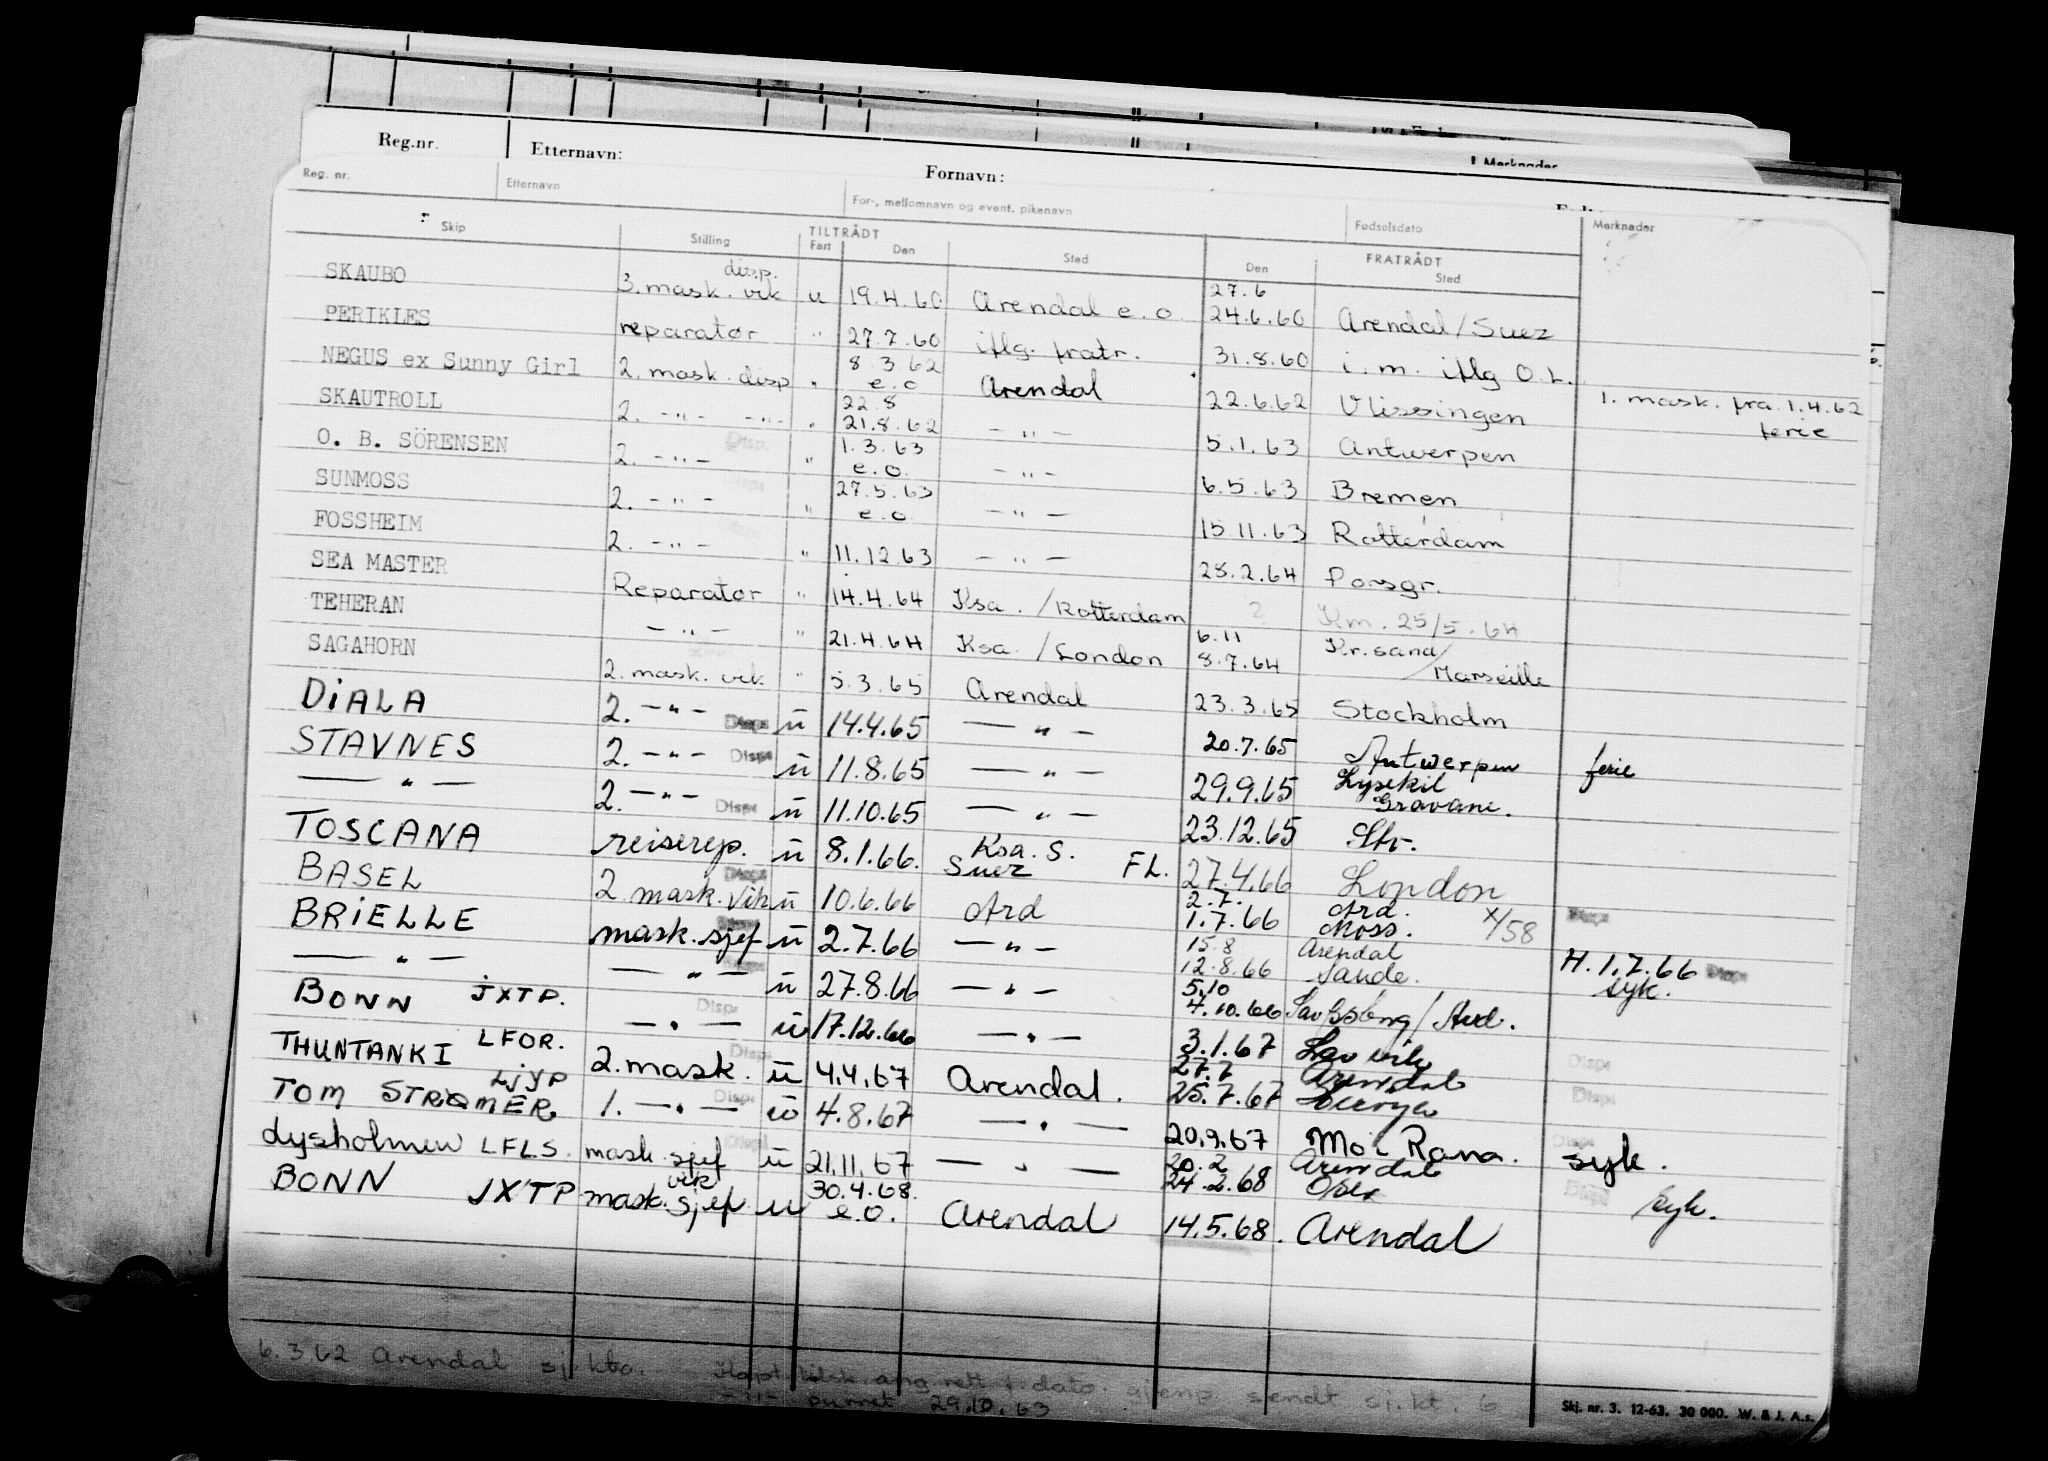 Merknader
Reg.nr. Etternavn: Fornavn:
Reg. nr. Etternavn For-, mellomnavn og event. pikenavn Fødselsdato Merknader
Skip Stilling TILTRÅDT Fart Den Sted Den FRATRÅDT Sted
SKAUBO 3. mask. vik disp. u 19.4.60 Arendal e.o. 27.6 24.6.60 Arendal/Suez
PERIKLES reparatør " 27.7.60 iflg. fratr. 31.8.60 i.m. iflg O.L.
NEGUS ex Sunny Girl 2. mask. disp " 8.3.62 e.o Arendal 22.6.62 Vlissingen 1. mask. fra 1.4.62 ferie
SKAUTROLL 2. -"- -"- " 22.8 21.8.62 -"- 5.1.63 Antwerpen
O. B. SÖRENSEN 2. -"- Disp. " 1.3.63 e.o. -"- 6.5.63 Bremen
SUNMOSS 2. -"- Disp. " 27.5.63 e.o. -"- 15.11.63 Rotterdam
FOSSHEIM 2. -"- " 11.12.63 -"- 28.2.64 Porsgr.
SEA MASTER Reparatør " 14.4.64 Ksa. /Rotterdam ? Km. 25/5.64
TEHERAN -"- " 21.4.64 Ksa. /London 6.11 8.7.64 Kr.sand/Marseille
SAGAHORN 2. mask. vik. " 5.3.65 Arendal 23.3.65 Stockholm
DiALA 2. -"- Disp. u 14.4.65 -"- 20.7.65 Antwerpen ferie
STAVNES 2. -"- Disp. u 11.8.65 -"- 29.9.65 Lysekil Gravarne.
-"- 2. -"- Disp. u 11.10.65 -"- 23.12.65
TOSCANA reiserep. u 8.1.66. Ksa. S. Suez FL. 27.4.66 London
BASEL 2. mask. vik u 10.6.66 Ard 2.7. 1.7.66 Ard. Moss. x/58
BRiELLE mask. sjef u 2.7.66 -"- 15.8 12.8.66 Arendal Sande. H. 1.7.66 Disp. syk.
-"- -"- u 27.8.66 -"- 5.10 4.10.66
BONN JXTP. -"- Disp. u 17.12.66 -"- 3.1.67
THUNTANKI LFOR. 2. mask. Disp. u 4.4.67 Arendal. 27.7 25.7.67 Arendal Disp.
TOM STRØMER LJYP 1. -"- Disp. u 4.8.67 -"- 20.9.67 Moi Rana. syk.
dysholmen LFLS. mask. sjef u 21.11.67 -"- 20.2 24.2.68 Arendal syk.
BONN JXTP mask. sjef vik u 30.4.68. e.o. Arendal 14.5.68. Arendal
6.3.62 Arendal sj.kto. Kapt. gjenp. sendt sj.kt. 6
-"- purret 29.10.63
Skj. nr. 3. 12-63. 30 000. W. & J. A.s.